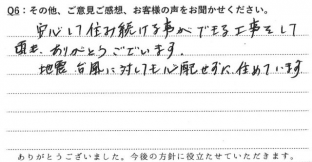 Q6：その他、ご意見ご感想、お客様の声をお聞かせください。
安心して住み続ける事ができる工事をして
頂き、ありがとうございます。
地震、台風に対しても心配せずに、住めています
ありがとうございました。今後の方針に役立たせていただきます。